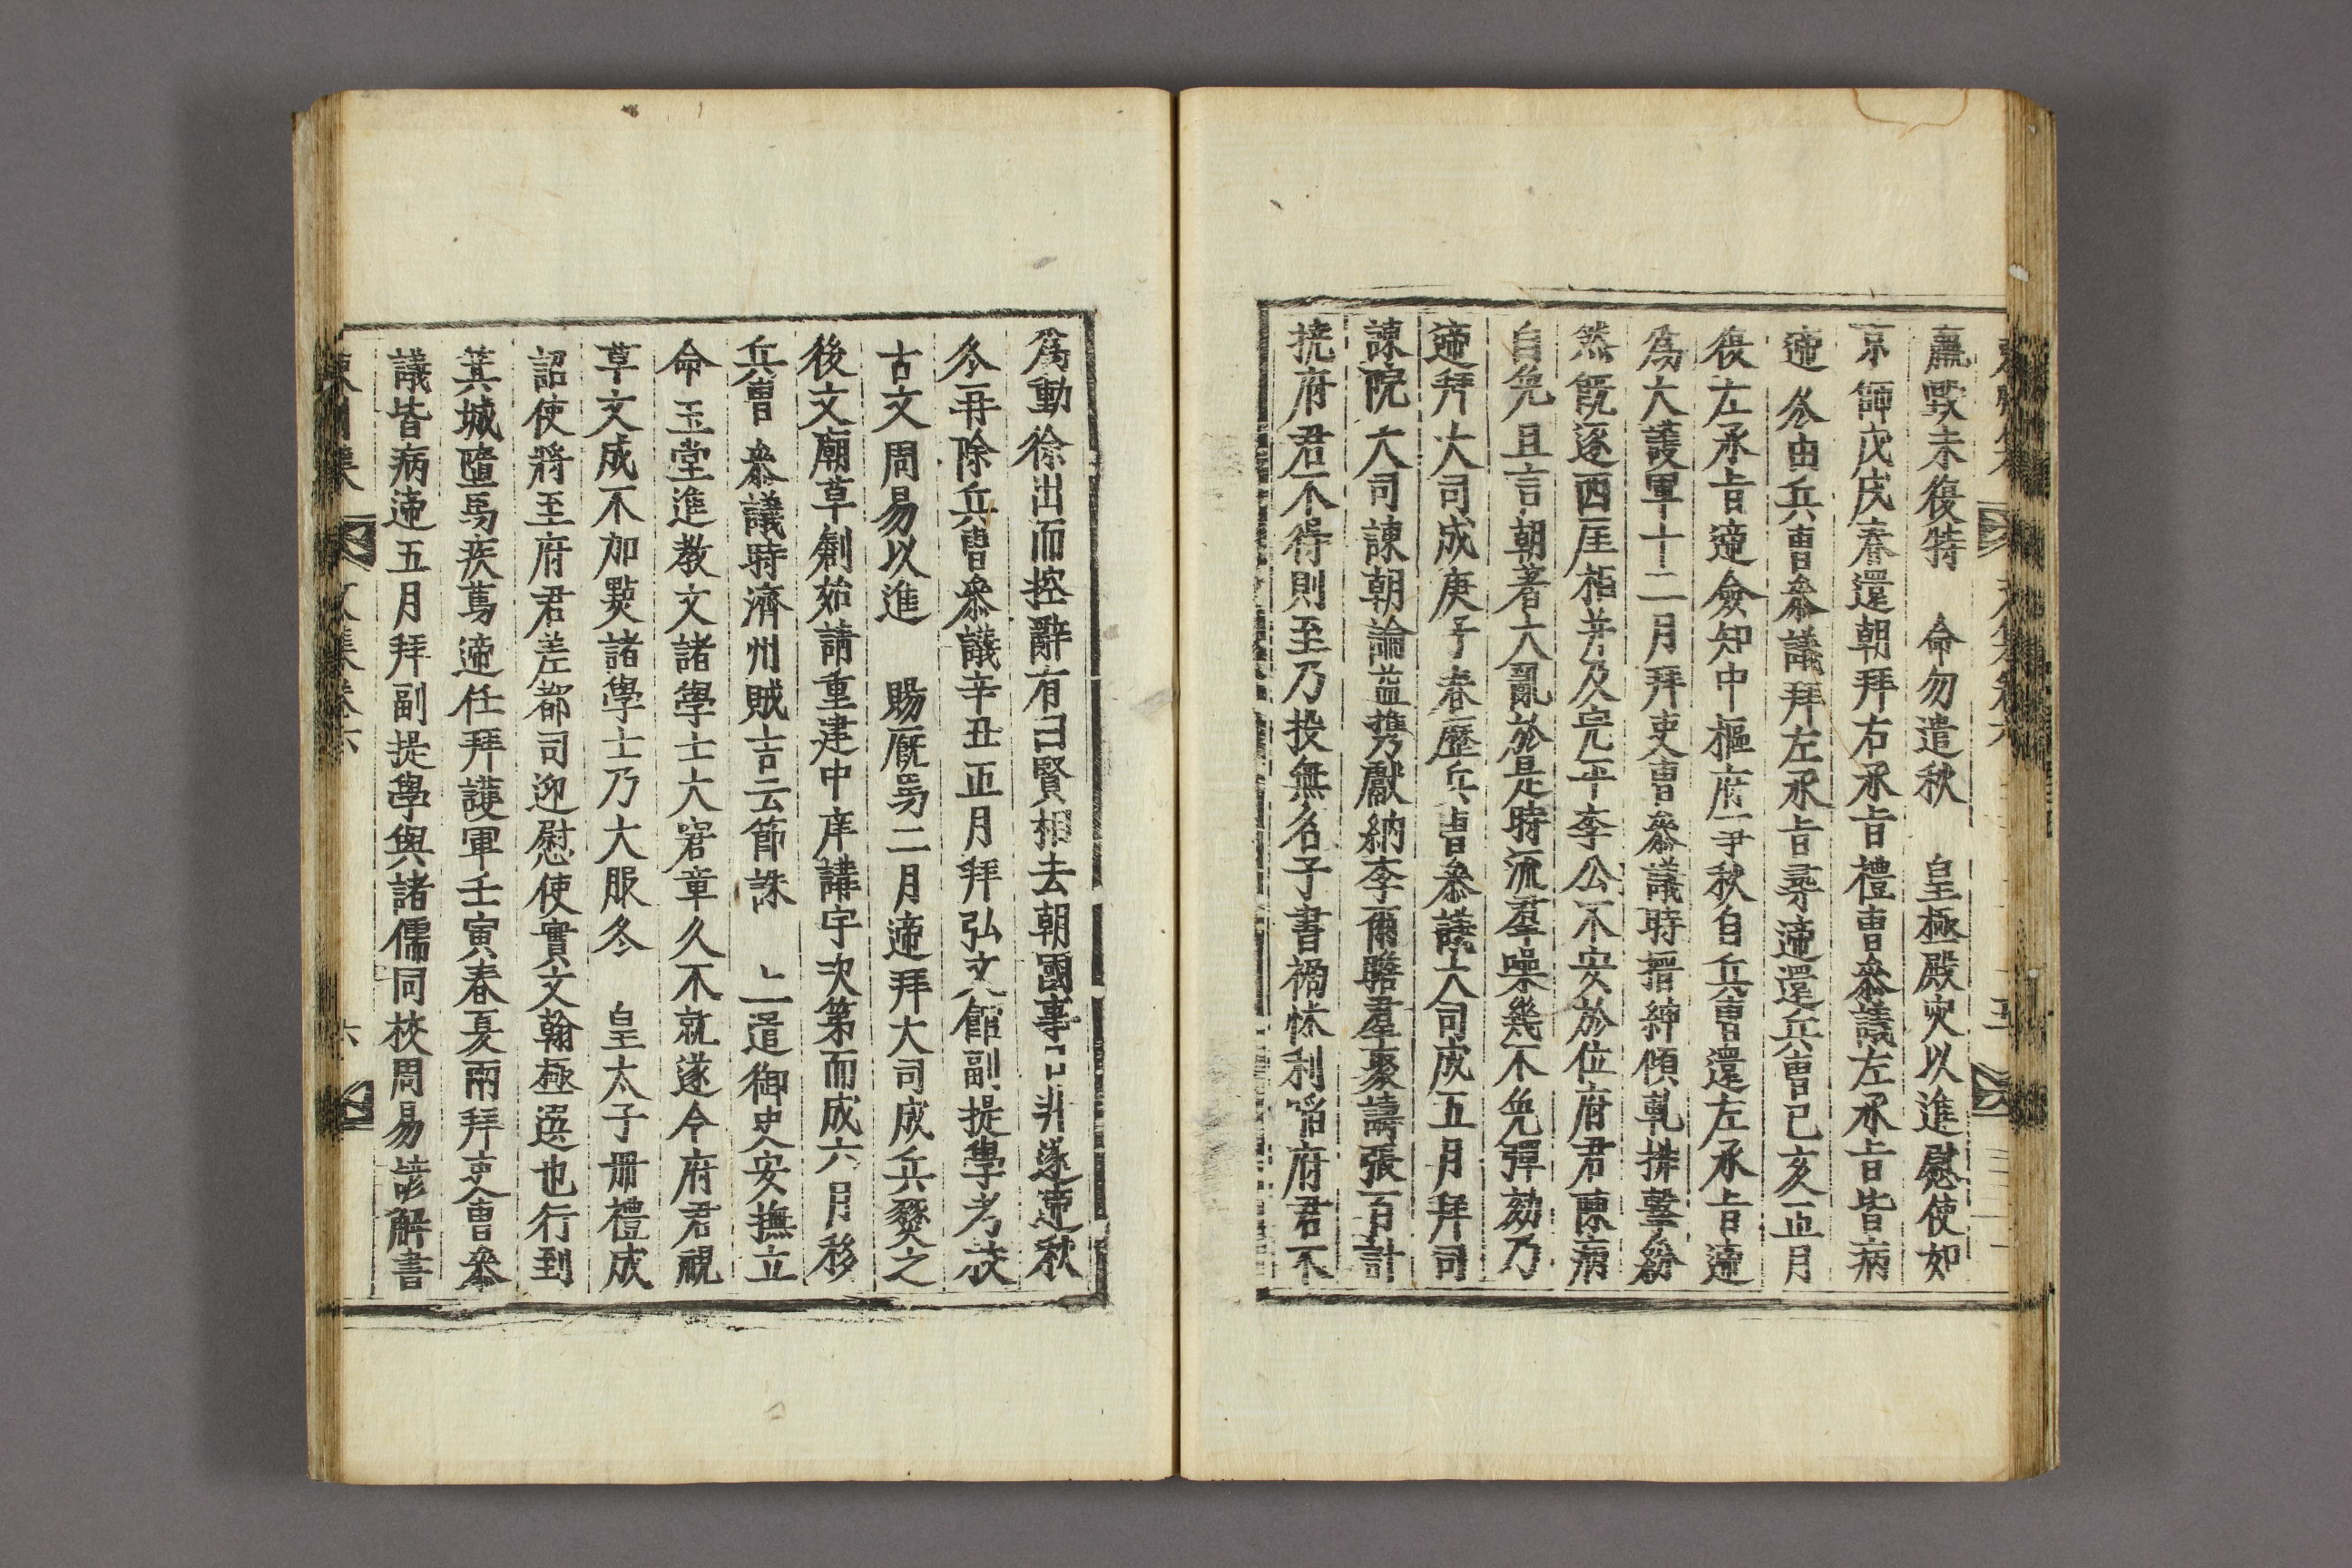 羸毀未復特 命勿遣秋 皇極殿灾以進慰使如
京師戊戌春還朝拜右承旨禮曹叅議左承旨皆病
遆冬由兵曹叅議拜左承旨尋遆還兵曹己亥正月
復左承旨遆僉知中樞府事秋自兵曹還左承旨遆
爲大護軍十二月拜吏曹叅議時搢紳傾軋排擊紛
然旣逐西厓栢巖及完平李公不安於位府君陳病
自免且言朝著大亂於是時流羣噪幾不免彈劾乃
遆拜大司成庚子春歷兵曹叅議大司成五月拜司
諫院大司諫朝論益携獻納李爾瞻羣聚譸張百計
撓府君不得則至乃投無名子書禍怵利啗府君不
爲動徐出而控辭有曰賢相去朝國事 遂遆秋
冬再除兵曹叅議辛丑正月拜弘文館副提學考校
古文周易以進 賜厩馬二月遆拜大司成兵燹之
後文廟草創茹請重建中庠講宇次第而成六月移
兵曹叅議時濟州賊吉云節誅 上遣御史安撫立
命玉堂進教文諸學士大窘章久不就遂令府君視
草文成不加點諸學士乃大服冬 皇太子冊禮成
詔使將至府君差都司迎慰使實文翰極選也行到
箕城墮馬疾篤遆任拜護軍壬寅春夏兩拜吏曹叅
議皆病遆五月拜副提學與諸儒同校周易諺解書
文集卷六
六